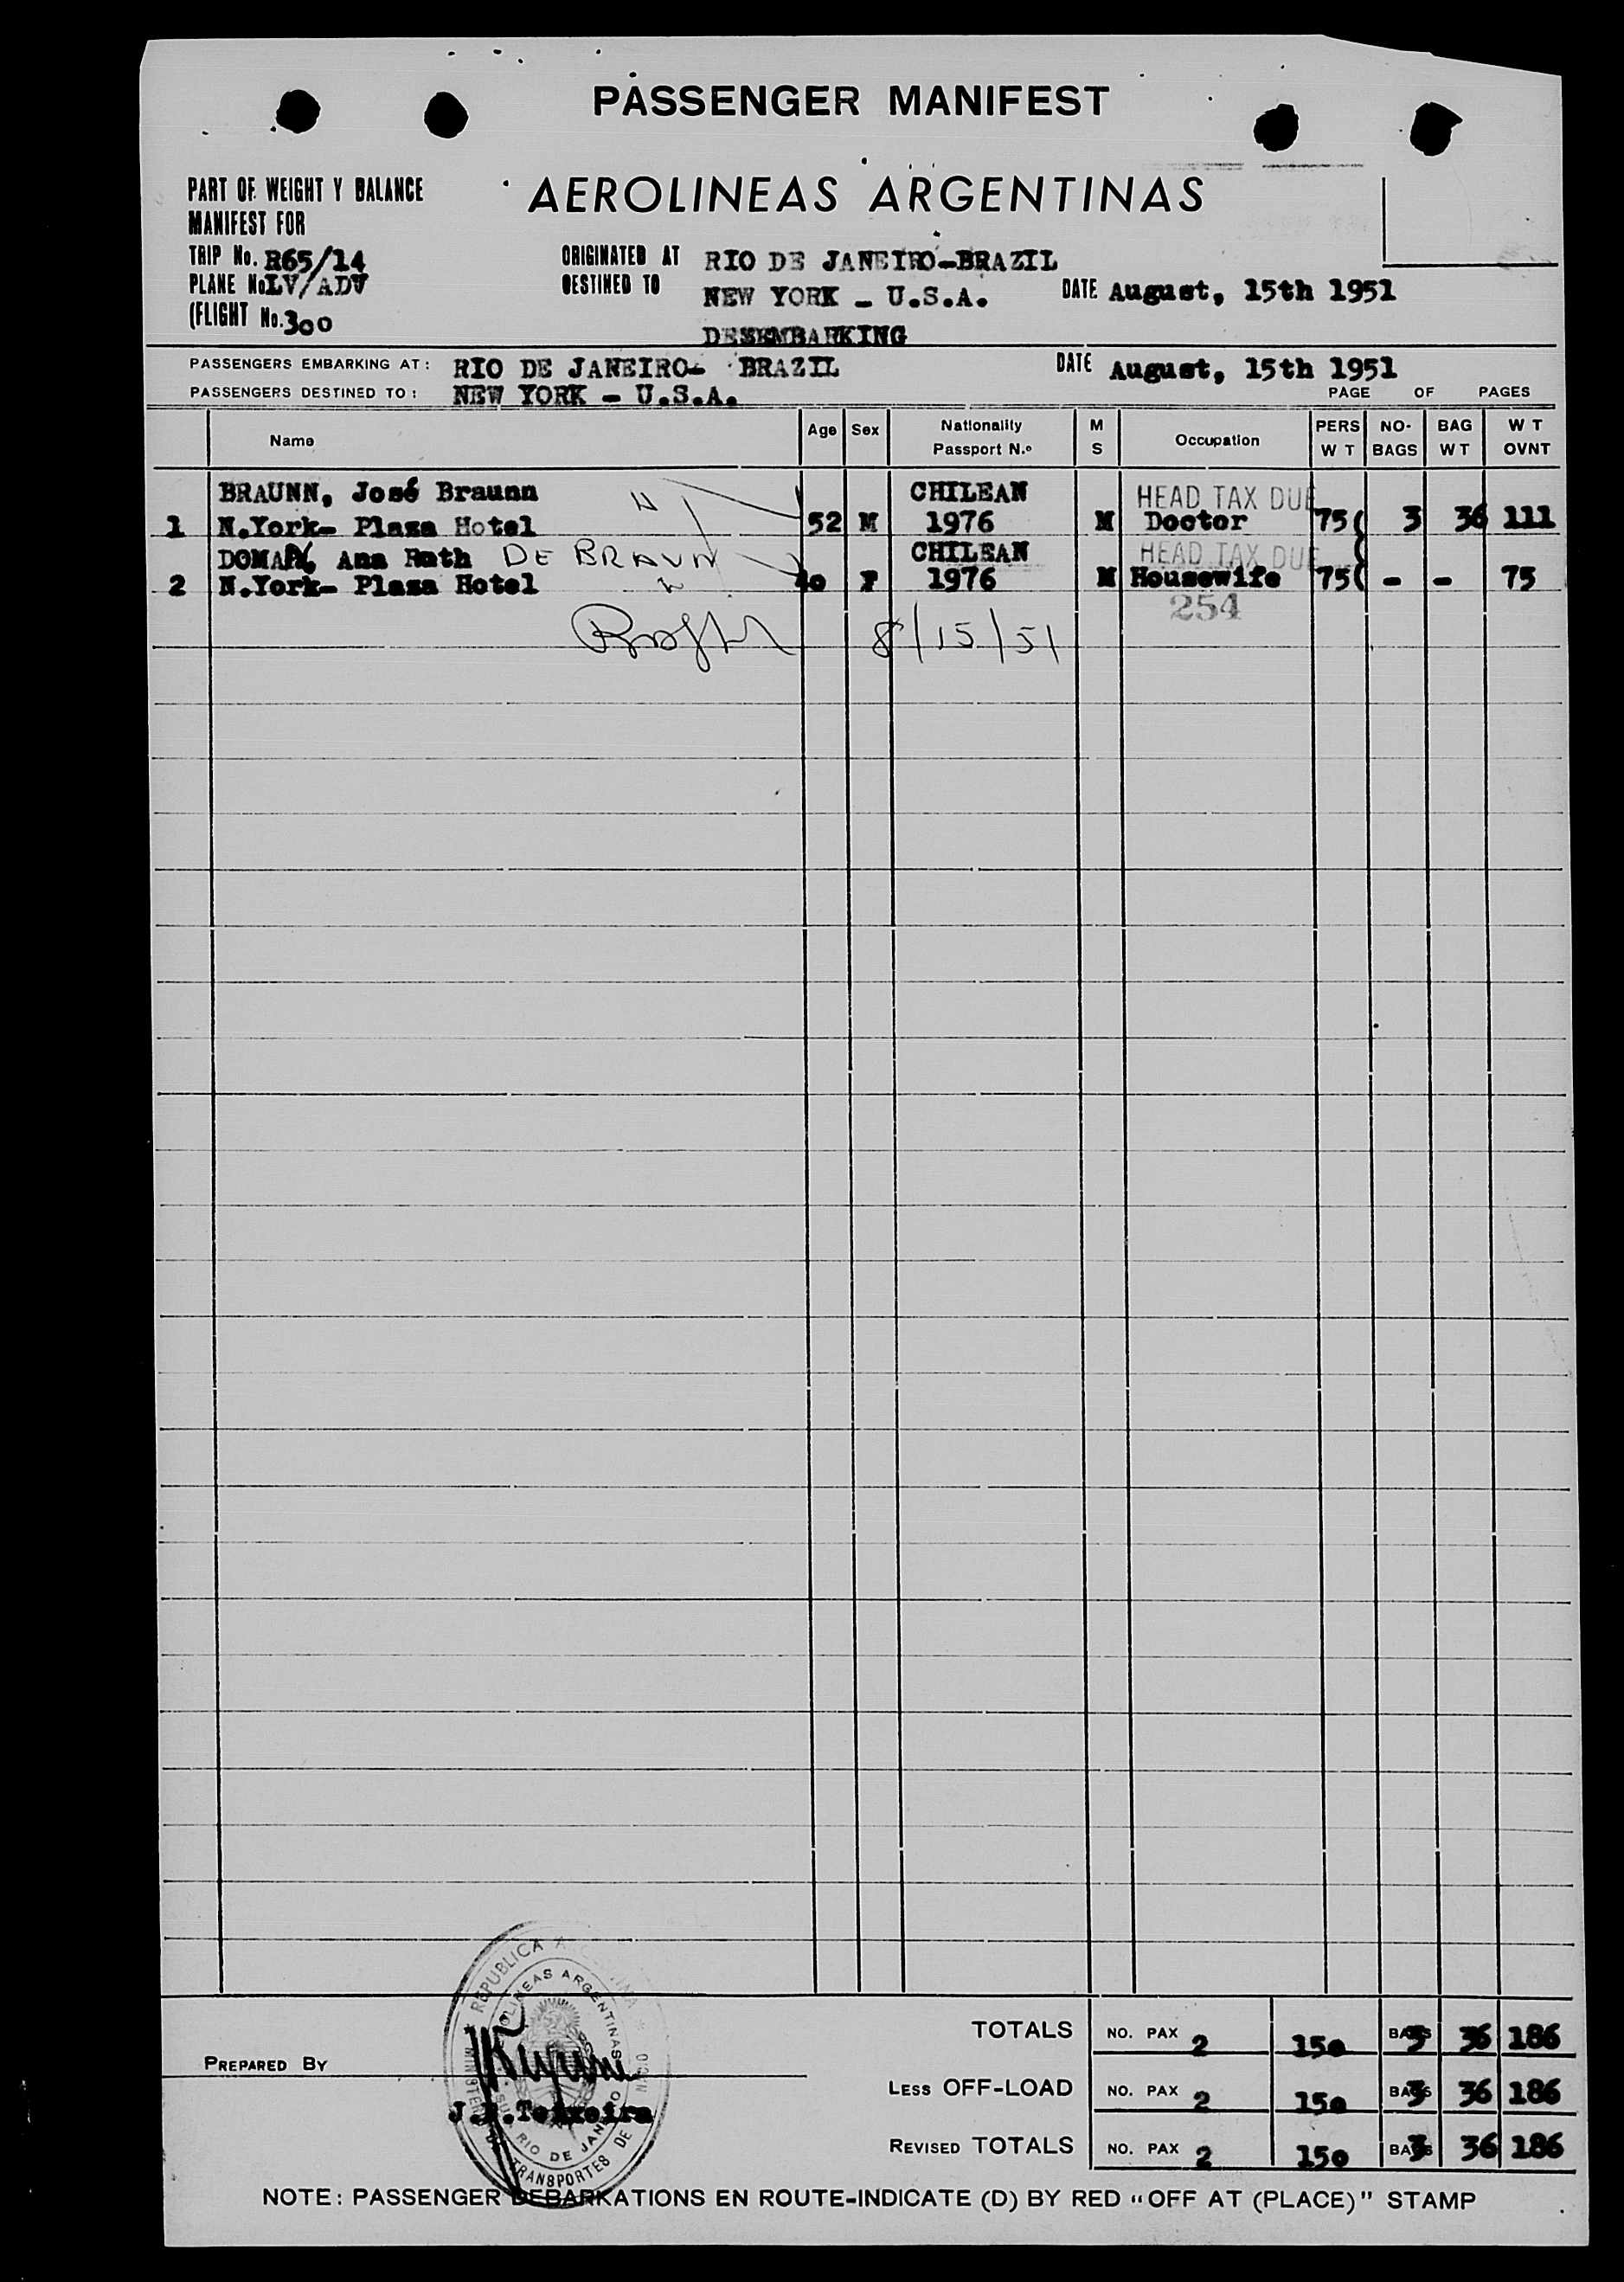 PASSENGER MANIFEST
AEROLINEAS ARGENTINAS
PART OF WEIGHT Y BALANCE
MANIFEST FOR
TRIP No. R65/14
PLANE No LV/ADV
(FLIGHT No. 300
ORIGINATED AT RIO DE JANEIRO-BRAZIL
DESTINED TO NEW YORK - U.S.A. DATE August, 15th 1951
DESEMBARKING
PASSENGERS EMBARKING AT: RIO DE JANEIRO- BRAZIL DATE August, 15th 1951
PASSENGERS DESTINED TO: NEW YORK - U.S.A. PAGE OF PAGES
Name Age Sex Nationality Passport N.º M S Occupation PERS W T NO- BAGS BAG W T W T OVNT
BRAUNN, José Braunn CHILEAN HEAD TAX DUE
1 N.York- Plaza Hotel 52 M 1976 M Doctor 75( 3 36 111
DOMAN, Ana Ruth DE BRAUN CHILEAN HEAD TAX DUE
2 N.York- Plaza Hotel 40 F 1976 M Housewife 75( - - 75
254
8/15/51
TOTALS NO. PAX 2 150 BAGS 3 36 186
PREPARED BY
LESS OFF-LOAD NO. PAX 2 150 BAGS 3 36 186
J. Teixeira
REVISED TOTALS NO. PAX 2 150 BAGS 3 36 186
REPUBLICA
AEROLINEAS ARGENTINAS
RIO DE JANEIRO
TRANSPORTES DE
NOTE: PASSENGER DEBARKATIONS EN ROUTE-INDICATE (D) BY RED "OFF AT (PLACE)" STAMP